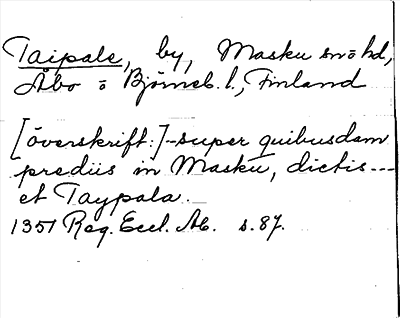 Taipale, by, Masku sn o hd,
Åbo o Björneb. l., Finland
[överskrift:]--super quibusdam
prediis in Masku, dictis---
et Taypala.
1351 Reg. Eccl. Ab. s. 87.